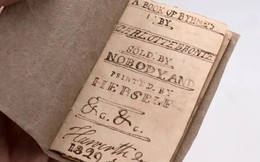 A BOOK OF RYHMES
BY
CHARLOTTE BRONTE
SOLD BY
NOBODY AND
PRINTED BY
HERSELF
&c. &c.
Haworth
1829